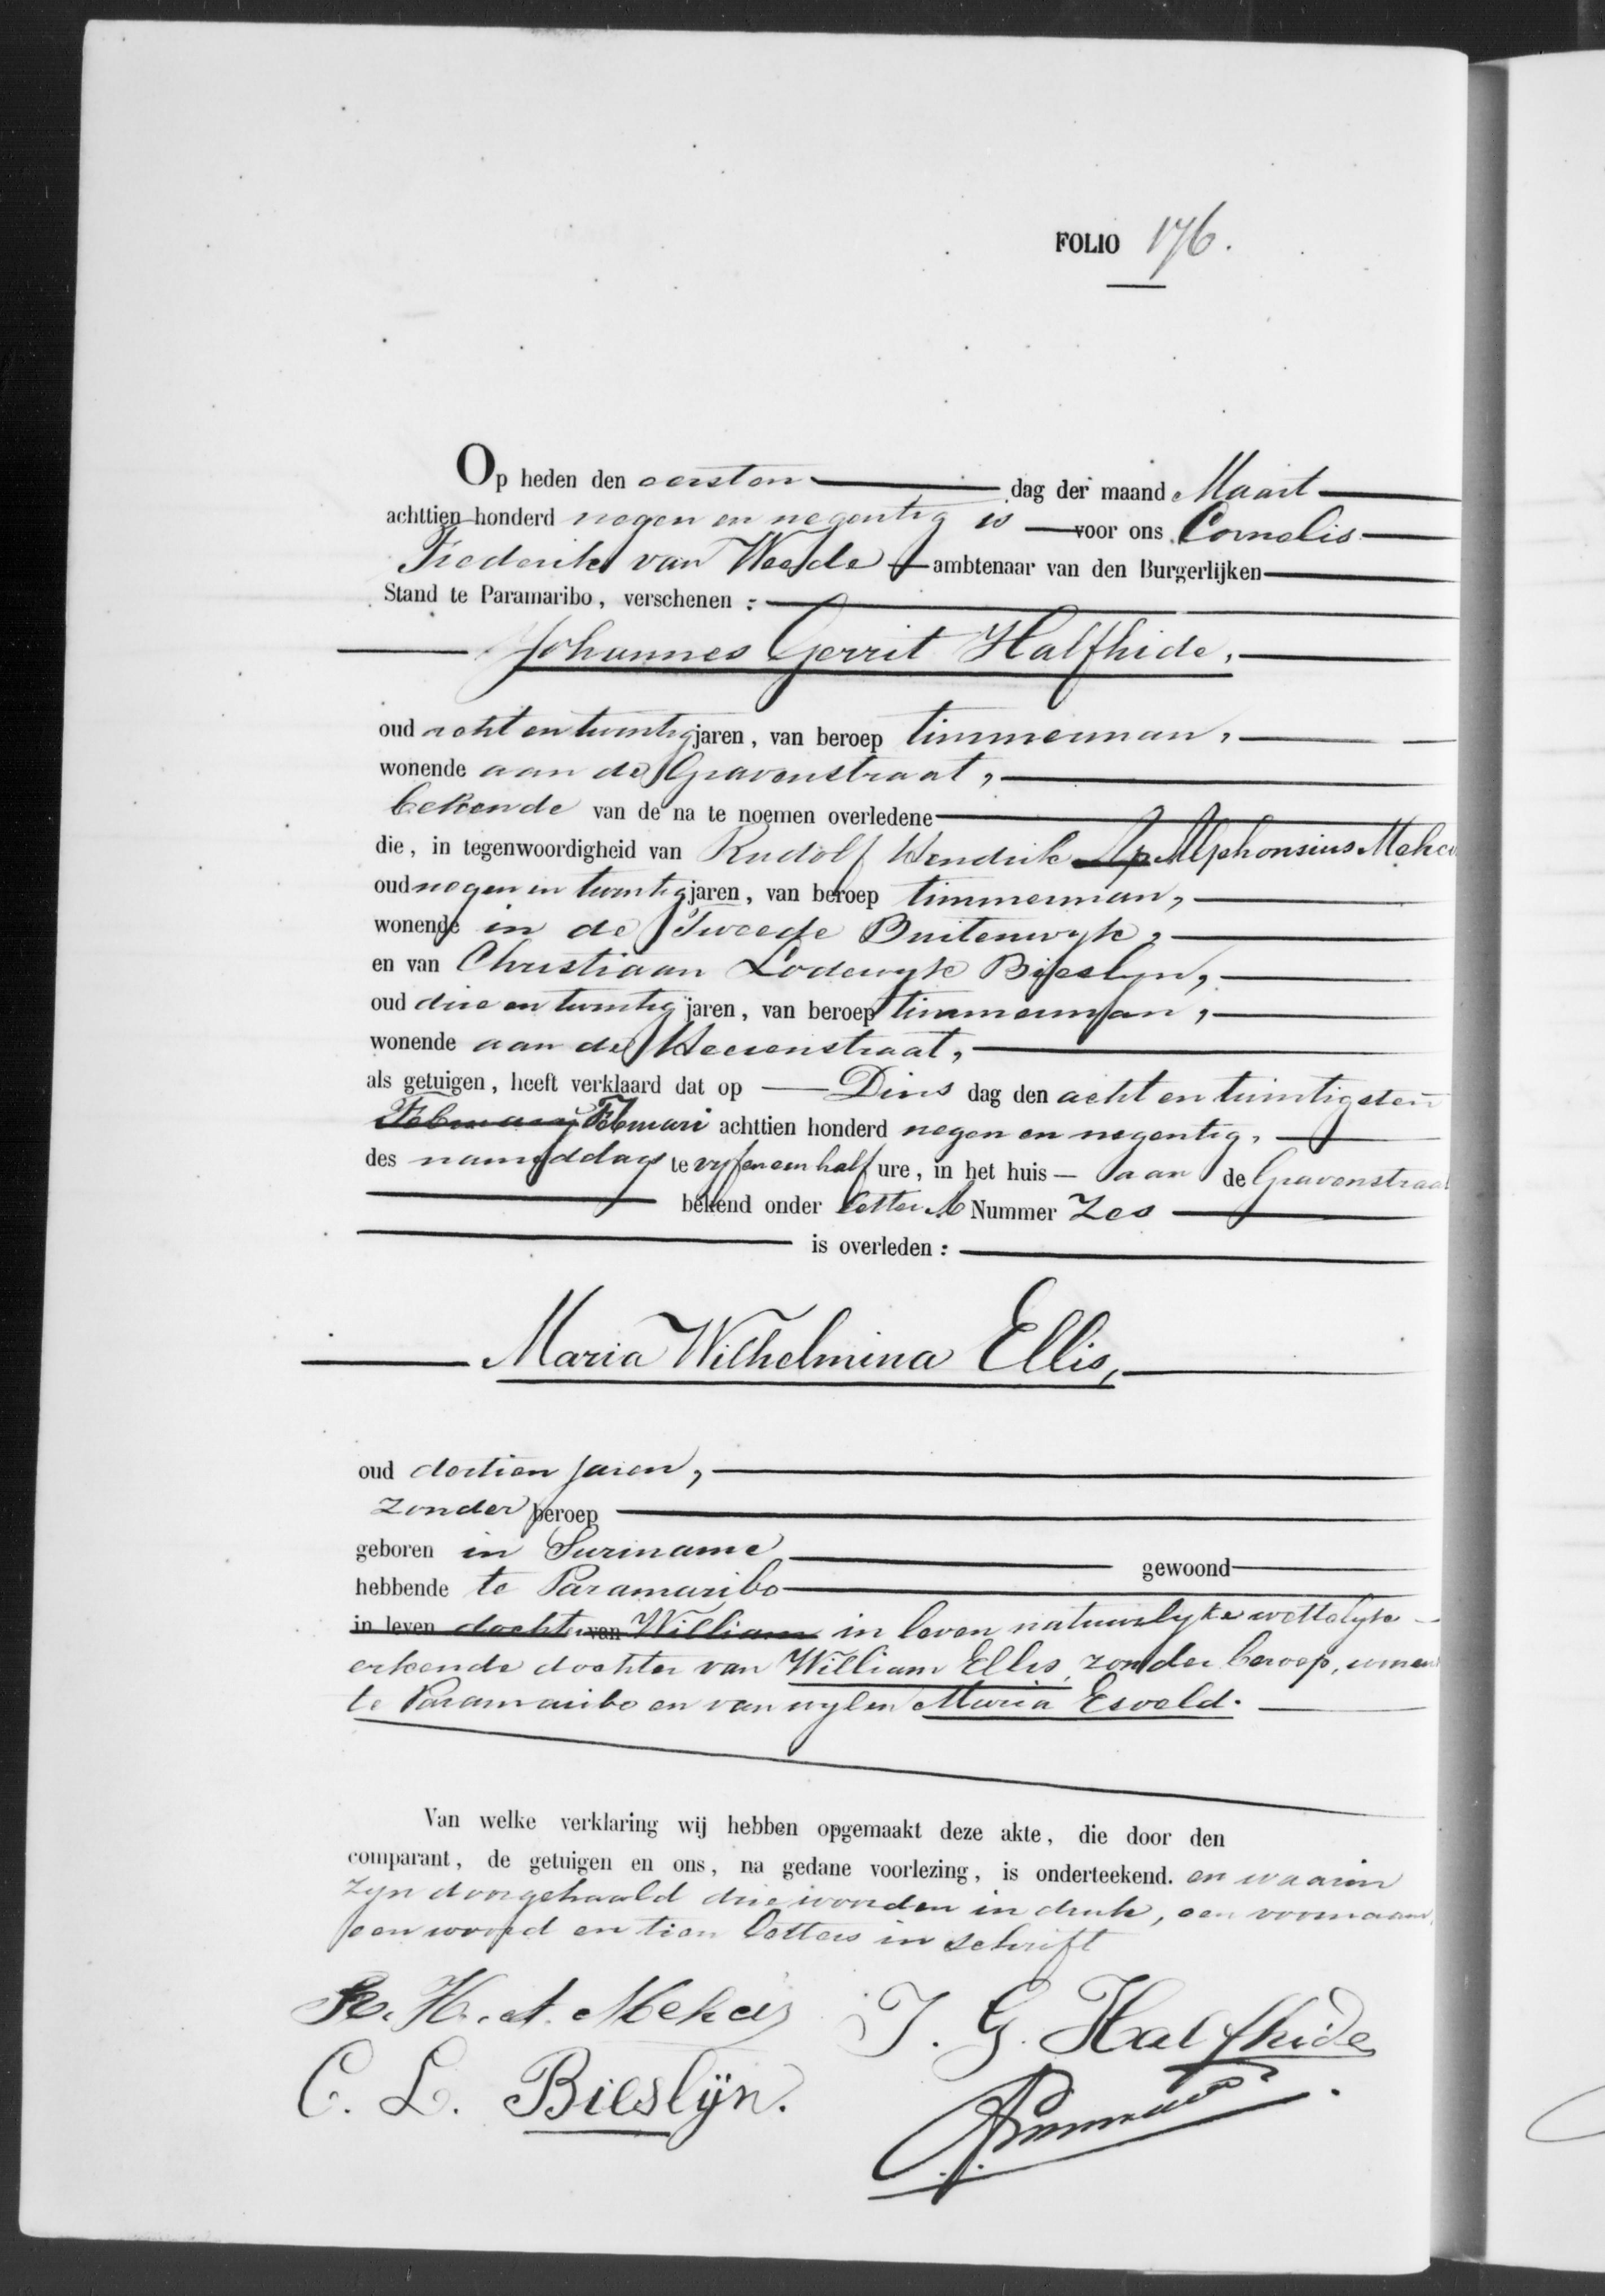 FOLIO 176.
Op heden den eersten dag der maand Maart
achttien honderd negen en negentig is voor ons Cornelis
Frederik van Weede ambtenaar van den Burgerlijken
Stand te Paramaribo, verschenen :
Johannes Gerrit Halfhide,
oud acht en twintig jaren, van beroep timmerman,
wonende aan de Gravenstraat,
bekende van de na te noemen overledene
die, in tegenwoordigheid van Rudolf Hendrik Ap Alphonsius
oud negen en twintig jaren, van beroep timmerman,
wonende in de Tweede Buitenwyk,
en van Christiaan Lodewyk Bieslyn,
oud drie en twintig jaren, van beroep timmerman,
wonende aan de Heerenstraat,
als getuigen, heeft verklaard dat op Dins dag den acht en twintigsten
February Februari achttien honderd negen en negentig,
des namiddags te vyf en een half ure, in het huis aan de Gravenstraat
bekend onder Letter Nummer Zes
is overleden :
Maria Wilhelmina Ellis,
oud dertien jaren,
zonder beroep
geboren in Suriname gewoond
hebbende te Paramaribo
in leven dochter van William in leven natuurlyke wettelyke
erkende dochter van William Ellis, zonder beroep, wonen
te Paramaribo en van wylen Maria Esveld.
Van welke verklaring wij hebben opgemaakt deze akte, die door den
comparant, de getuigen en ons, na gedane voorlezing, is onderteekend. en waarin
zyn doorgehaald drie woorden in druk, een voornaam,
een woord en tien letters in schrift
R. H. A.
J. G. Halfhide
C. L. Bieslijn.